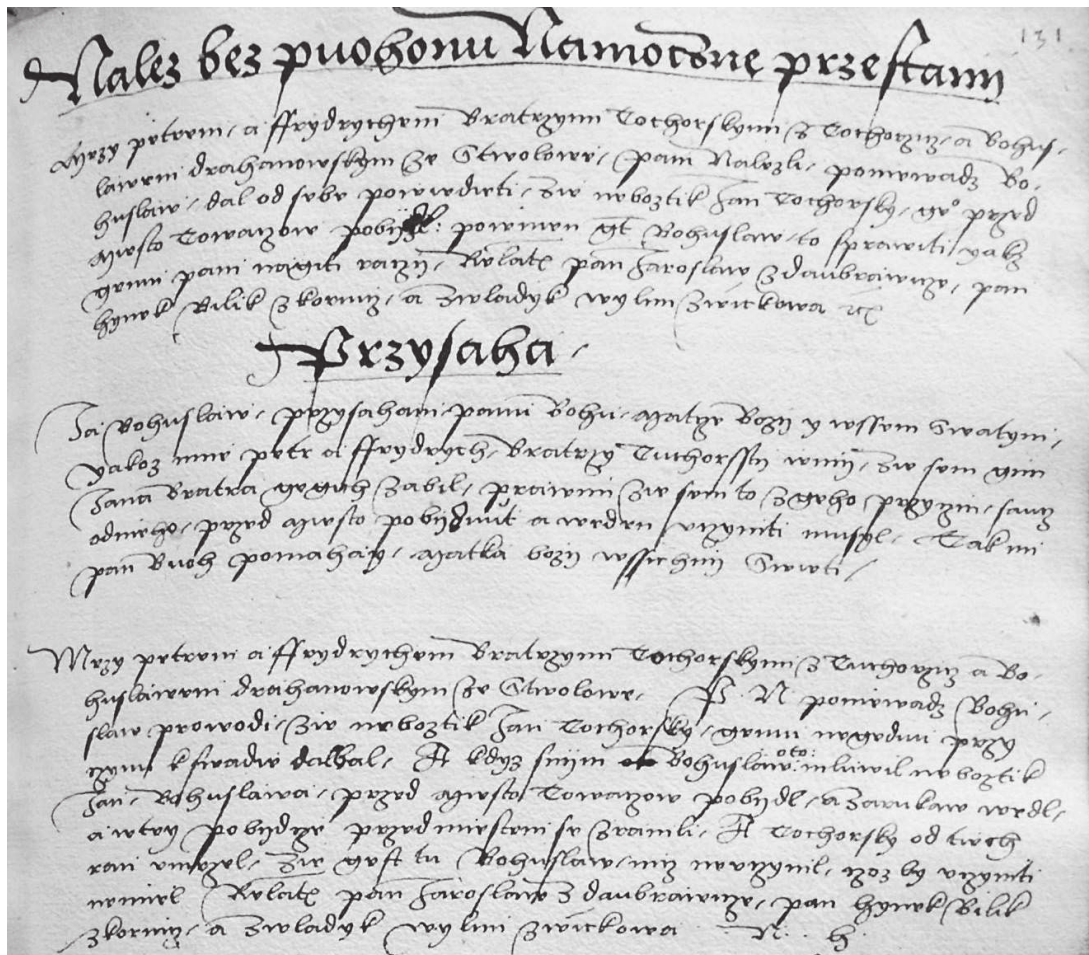 131
Nalez bez puohonu Na mocone przestani
Mezy petrem, a ffrydrychem Bratrzymi Tochorskymi z Tochorzicz, a Bohus-
lawem drahanowskym ze Stwolowe, pani Nalezli, poniewadz Bo-
huslaw, dal od sebe powiedieti, zie neboztik Jan Tochorsky, geo przed
miesto Towaczow pobijzel: powinen gt Bohuslaw to sprawiti yakz
gemu pani nagiti raczy, Relatz pan Jaroslaw z daubrawicze, pan
hynek Bilik z kornicz, a z wladyk wylim z wickowa etc
Przysaha
Ja Bohuslaw, przysaham panu Bohu, Matcze Bozy y wssem Swatym,
yakoz mne petr a ffrydrych, Bratrzy Tuchorssti winij, zie sem gim
Jana Bratra gegich zabil, prawim zie sem to z geho przyczin, sancz
od neho, przed miesto pobijdnut a weden ucziniti musyl, Tak mi
pan Buoh pomahay, Matka bozy wssichni Swieti,
Mezy petrem a ffrydrychem Bratrzymi Tochorskymi z Tuchorzicz a Bo-
huslawem drahanowskym ze Stwolowe, P. N poniewadz Bohu-
slaw prowodi, zie neboztik Jan Tochorsky, gemu negednu przy
czynu k swadie dal, A kdyz s nijm Bohuslaw oto: mluwil neboztik
Jan, Bohuslawa, przed miesto Towaczow pobijdl, a za rukaw wedl,
a w tey pobijdcze przed miestem se zranili, A Tochorsky od tiech
ran umrzel, zie gest tu Bohuslaw nicz neuczynil, czoz by ucziniti
nemiel Relatz pan Jaroslaw z daubrawicze, pan hynek Bilik
z kornicz, a z wladyk wylim z wickowa N. h